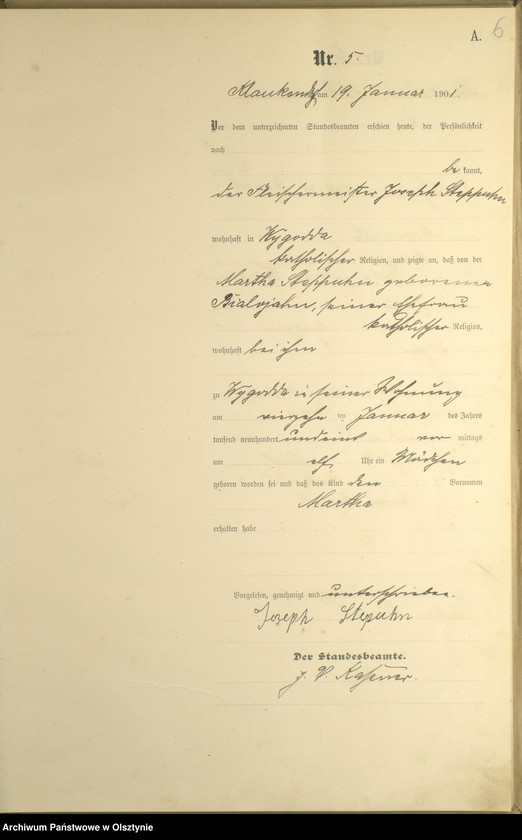 A. 6
Nr. 5.
Klaukendorf am 19. Januar 1901.
Vor dem unterzeichneten Standesbeamten erschien heute, der Persönlichkeit
nach
be kannt,
der Fleischermeister Joseph Steppuhn
wohnhaft in Wygodda
katholischer Religion, und zeigte an, daß von der
Martha Steppuhn geborenen
Bialojahn, seiner Ehefrau
katholischer Religion,
wohnhaft bei ihm
zu Wygodda in seiner Wohnung
am vierzehn ten Januar des Jahres
tausend neunhundert und eins vor mittags
um elf Uhr ein Mädchen
geboren worden sei und daß das Kind den Vornamen
Martha
erhalten habe
Vorgelesen, genehmigt und unterschrieben.
Joseph Stepuhn
Der Standesbeamte.
J. V.
Archiwum Państwowe w Olsztynie